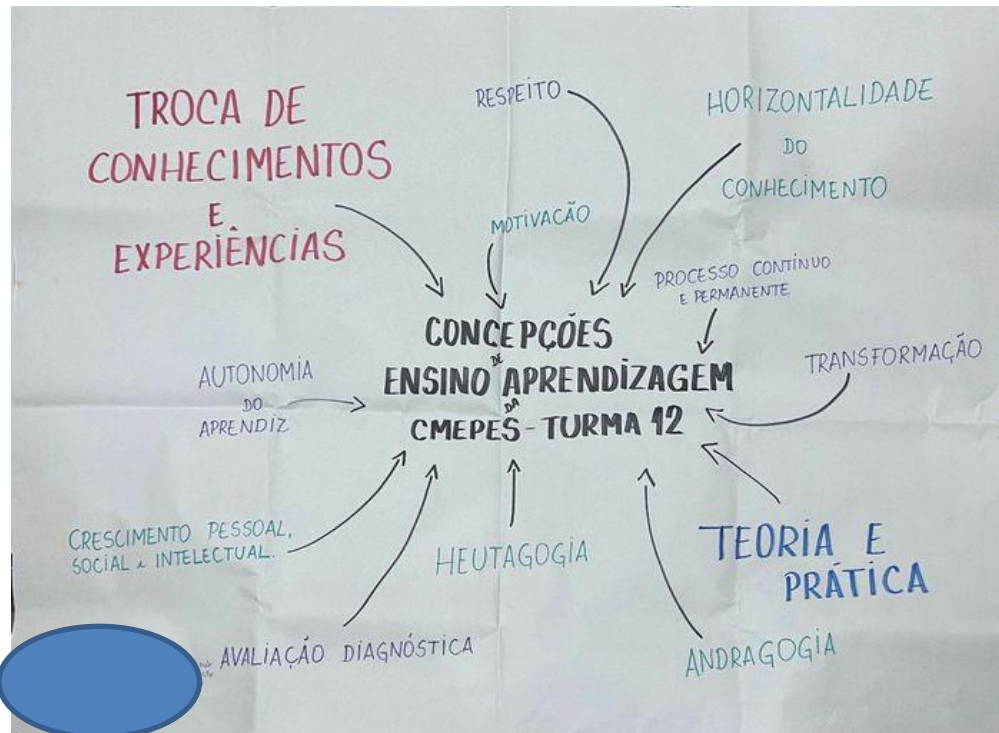 TROCA DE
CONHECIMENTOS
E
EXPERIÊNCIAS
RESPEITO
HORIZONTALIDADE
DO
CONHECIMENTO
MOTIVACÃO
PROCESSO CONTÍNUO
E PERMANENTE
CONCEPÇÕES
DE
ENSINO APRENDIZAGEM
DA
CMEPES - TURMA 12
TRANSFORMAÇÃO
AUTONOMIA
DO
APRENDIZ
CRESCIMENTO PESSOAL,
SOCIAL e INTELECTUAL.
HEUTAGOGIA
TEORIA E
PRÁTICA
AVALIAÇÃO DIAGNÓSTICA
ANDRAGOGIA